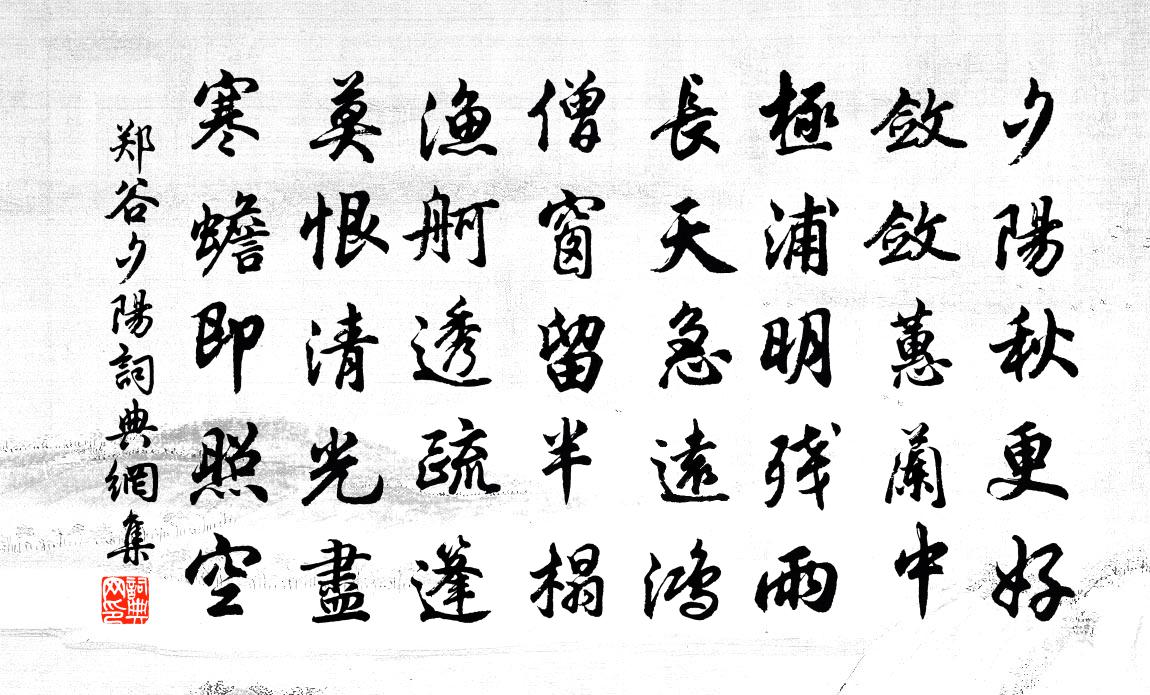 夕陽秋更好
斂斂蕙蘭中
極浦明残雨
長天急遠鴻
僧窗留半榻
漁舸透疏蓬
莫恨清光盡
寒蟾即照空
郑谷夕陽詞典網集
詞典网印